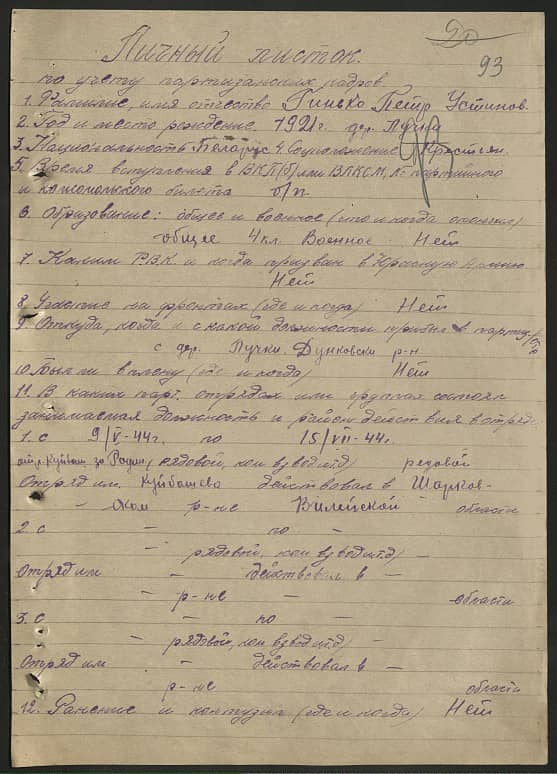 93
Личный листок
по учету партизанских кадров.
1. Фамилие, имя отчество Гинько Петр Устинов.
2. Год и место рождение 1921г. дер. Пучка
3. Национальность Белорус 4. Соцположение Крестьян.
5. Время вступления в ВКП(б) или ВЛКСМ, № партийного
и комсомольского билета б/п
6. Образование: общее и военное (что и когда окончил)
общее 4 кл. Военное - Нет
7. Каким Р.В.К. и когда призван в Красную Армию
Нет
8. Участие на фронтах (где и когда) Нет
9. Откуда, когда и с какой должности прибыл в партиз/
с дер. Пучки. Дунковски р-н
10. Был ли в плену (где и когда) Нет
11. В каких парт. отрядах или группах состоял
занимаемая должность и район действия в отряде
1. с 9/V-44г. по 15/VII-44г.
за Родин, (рядовой, ком взвод и.т.д) редовой
Отряд им. Куйбашева действовал в Шарков-
ском р-не Вилейской области
2 с - по -
- рядовой, ком взвод и.т.д) -
Отряд им - действовал в -
- р-не - области
3. с - по -
- рядовой, ком взвод и.т.д) -
Отряд им - действовал в -
р-не области
12. Ранение и контузия (где и когда) Нет